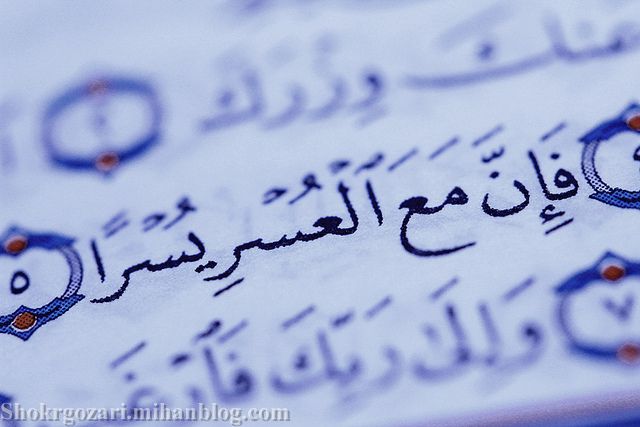 عَنكَ وِزْرَكَ ٢
فَإِنَّ مَعَ ٱلْعُسْرِ يُسْرًا ٥
٧ وَإِلَىٰ رَبِّكَ فَٱرْغَب
Shokrgozari.mihanblog.com